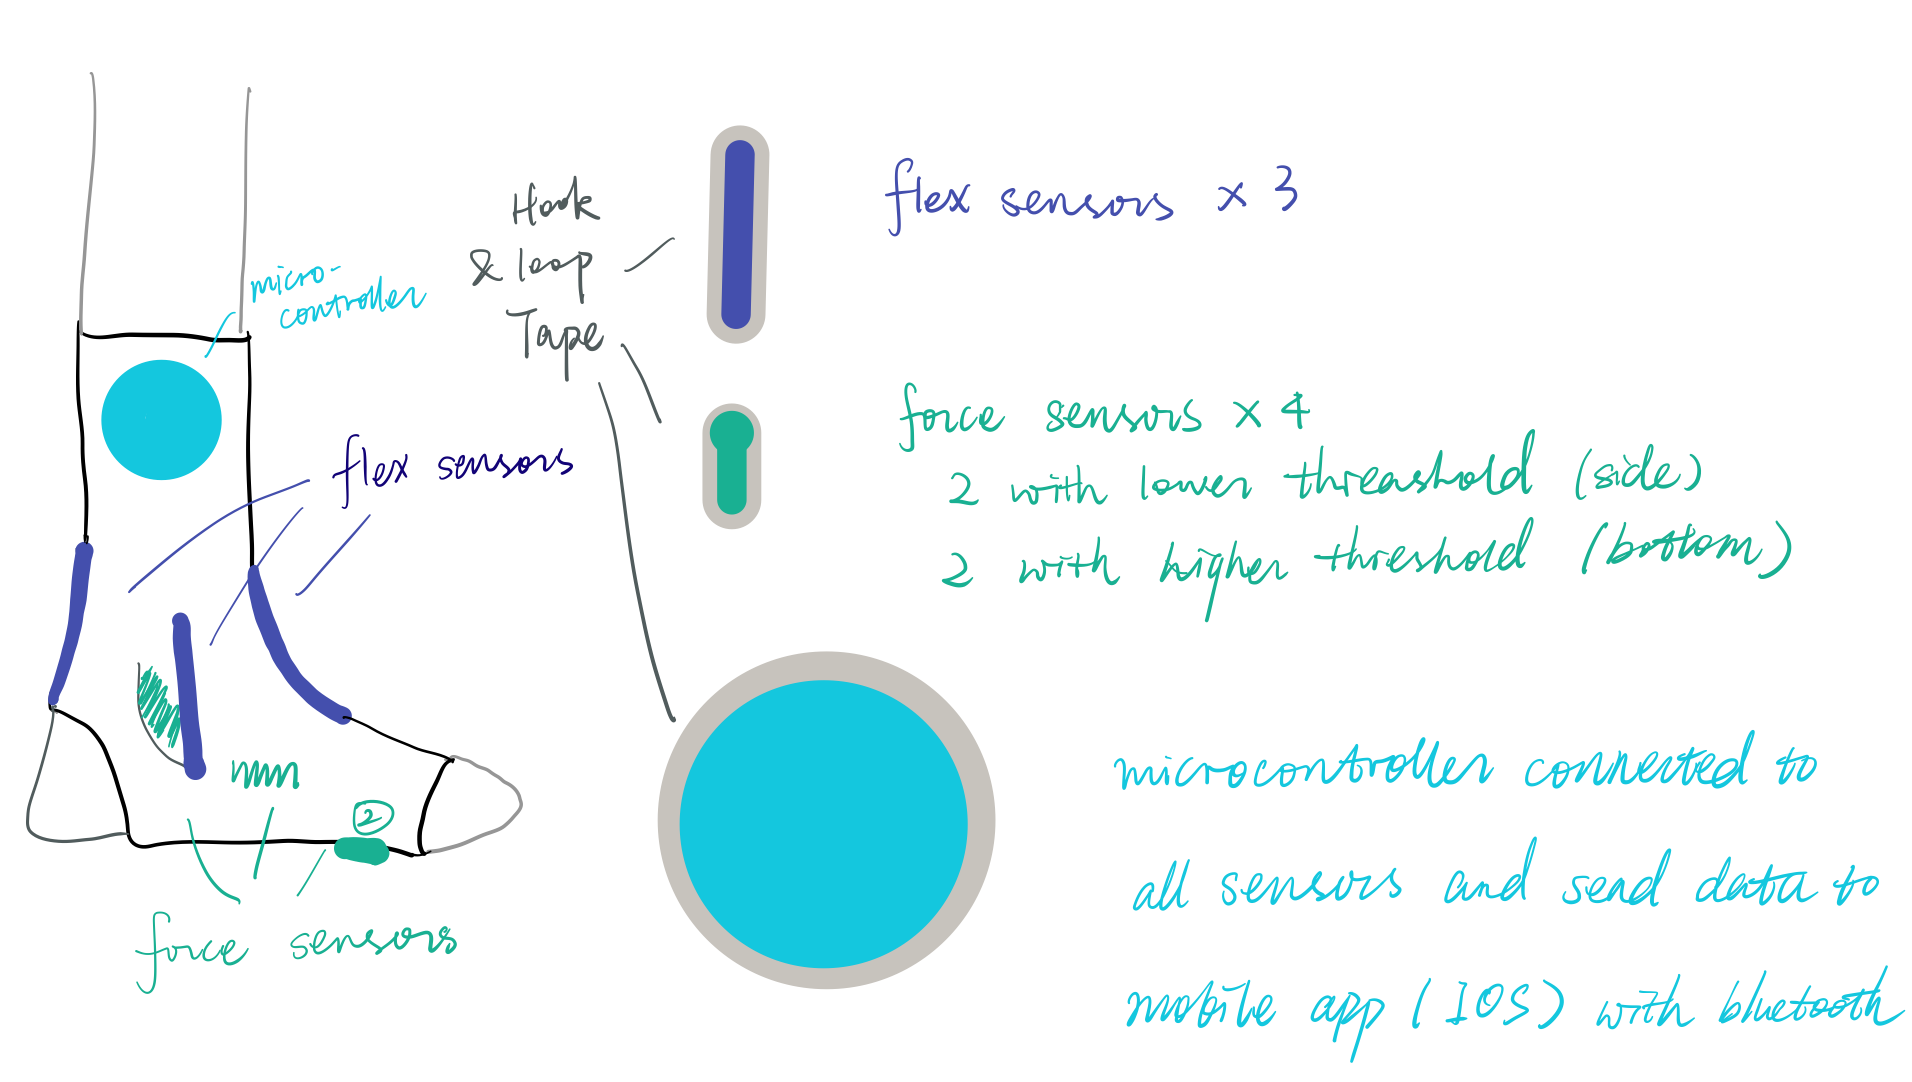 micro-
controller
flex sensors
②
force sensors
Hook
& loop
Tape
flex sensors x 3
force sensors x 4
2 with lower threashold (side)
2 with higher threshold (bottom)
microcontroller connected to
all sensors and send data to
mobile app (IOS) with bluetooth